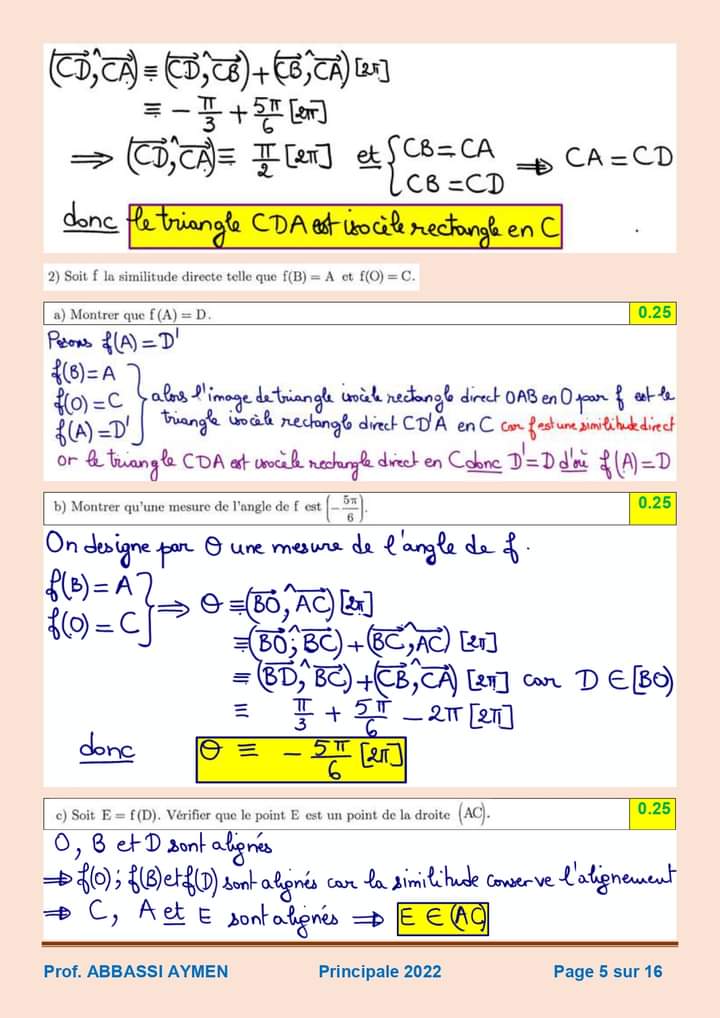 (CD, CA) ≡ (CD, CB) + (CB, CA) [2π]
≡ - π/3 + 5π/6 [2π]
⟹ (CD, CA) ≡ π/2 [2π] et { CB = CA ⟹ CA = CD
CB = CD
donc le triangle CDA est isocèle rectangle en C
2) Soit f la similitude directe telle que f(B) = A et f(O) = C.
a) Montrer que f(A) = D. 0.25
Posons f(A) = D'
f(B) = A
f(O) = C
f(A) = D'
} alors l'image de triangle isocèle rectangle direct OAB en O par f est le
triangle isocèle rectangle direct CD'A en C car f est une similitude direct
or le triangle CDA est isocèle rectangle direct en C donc D' = D d'où f(A) = D
b) Montrer qu'une mesure de l'angle de f est (-5π/6). 0.25
On designe par θ une mesure de l'angle de f.
f(B) = A
f(O) = C
} ⟹ θ ≡ (BO, AC) [2π]
≡ (BO, BC) + (BC, AC) [2π]
≡ (BD, BC) + (CB, CA) [2π] car D ∈ [BO)
≡ π/3 + 5π/6 - 2π [2π]
donc θ ≡ - 5π/6 [2π]
c) Soit E = f(D). Vérifier que le point E est un point de la droite (AC). 0.25
O, B et D sont alignés
⟹ f(O) ; f(B) et f(D) sont alignés car la similitude conserve l'alignement
⟹ C, A et E sont alignés ⟹ E ∈ (AC)
Prof. ABBASSI AYMEN Principale 2022 Page 5 sur 16